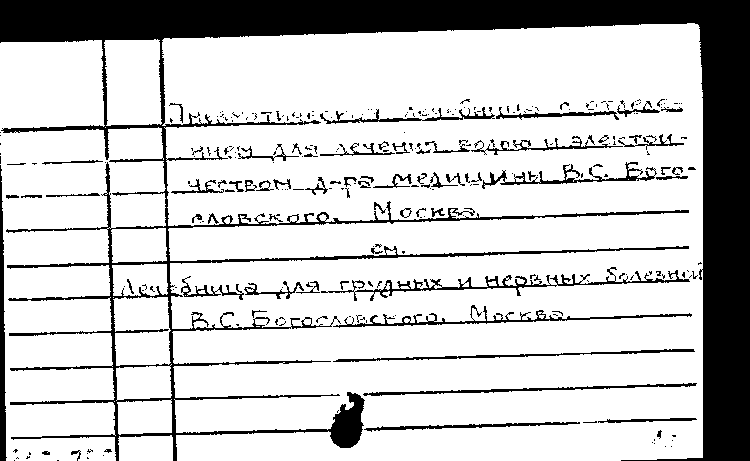 Пневматическая лечебница с отделе-
нием для лечения водою и электри-
чеством д-ра медицины В.С. Бого-
словского. Москва.
см.
Лечебница для грудных и нервных болезней
В.С. Богословского. Москва.